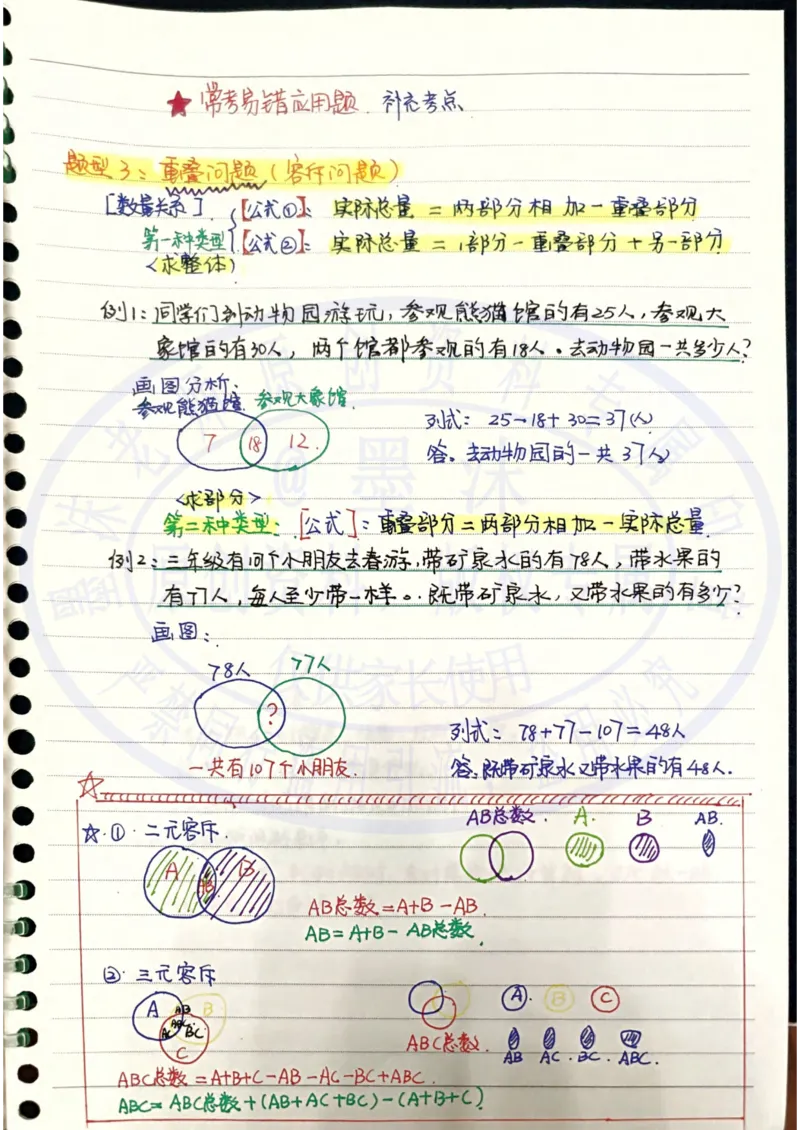 ★ 常考易错应用题 补充考点
题型3：重叠问题（容斥问题）
［数量关系］｛［公式①］：实际总量＝两部分相加－重叠部分
第一种类型 ［公式②］：实际总量＝1部分－重叠部分＋另一部分
＜求整体＞
例1：同学们到动物园游玩，参观熊猫馆的有25人，参观大
象馆的有30人，两个馆都参观的有18人。去动物园一共多少人？
画图分析：
参观熊猫馆 参观大象馆
7 18 12
列式：25－18＋30＝37（人）
答。去动物园的一共37人
＜求部分＞
第二种类型：［公式］：重叠部分＝两部分相加－实际总量
例2：三年级有107个小朋友去春游，带矿泉水的有78人，带水果的
有77人，每人至少带一样。既带矿泉水，又带水果的有多少？
画图：
78人 77人
？
一共有107个小朋友.
列式：78＋77－107＝48人
答。既带矿泉水又带水果的有48人.
☆① 二元容斥
A AB B
AB总数. A. B AB.
AB总数＝A＋B－AB
AB＝A＋B－AB总数.
② 三元容斥
A AB B
AC ABC BC
C
A. B C
ABC总数. AB AC BC ABC.
ABC总数＝A＋B＋C－AB－AC－BC＋ABC.
ABC＝ABC总数＋（AB＋AC＋BC）－（A＋B＋C）
@墨沫
仅供家长使用